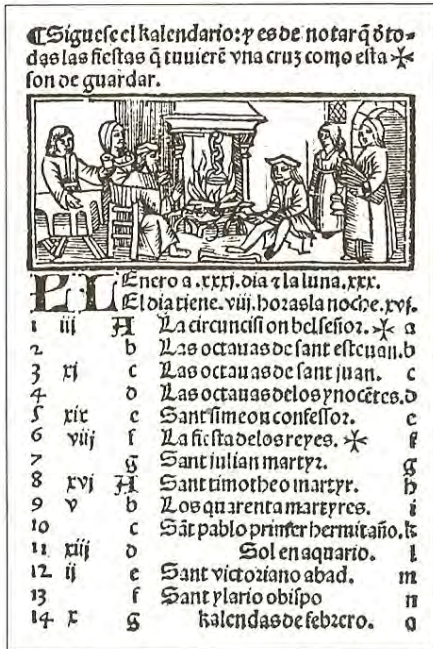 ¶Siguese el kalendario: y es de notar q̃ d̓to-
das las fiestas q̃ tuuierẽ vna cruz como esta ✠
son de guardar.
EL Enero a .xxxj. dia ⁊ la luna .xxx.
El dia tiene .viij. horas la noche .xvj.
1 iij A La circuncision del señor. ✠ a
2 b Las octauas de sant esteuan. b
3 xj c Las octauas de sant juan. c
4 d Las octauas delos ynocẽtes. d
5 xix e Sant simeon confessor. e
6 viij f La fiesta delos reyes. ✠ f
7 g Sant julian martyr. g
8 xvj A Sant timotheo martyr. h
9 v b Los quarenta martyres. i
10 c Sãt pablo primer hermitaño. k
11 xiij d Sol en aquario. l
12 ij e Sant victoriano abad. m
13 f Sant ylario obispo n
14 x g kalendas de febrero. o